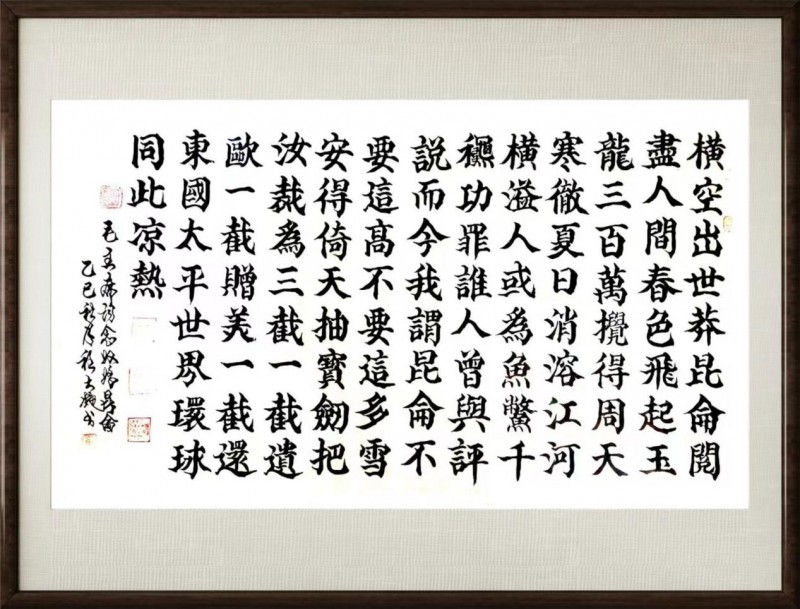 橫空出世莽昆侖閱
盡人間春色飛起玉
龍三百萬攪得周天
寒徹夏日消溶江河
橫溢人或為魚鱉千
龝功罪誰人曾與評
說而今我謂昆侖不
要這高不要這多雪
安得倚天抽寶劍把
汝裁為三截一截遺
歐一截贈美一截還
東國太平世界環球
同此凉熱
毛主席詞念奴嬌昆侖
乙巳秋月程大書